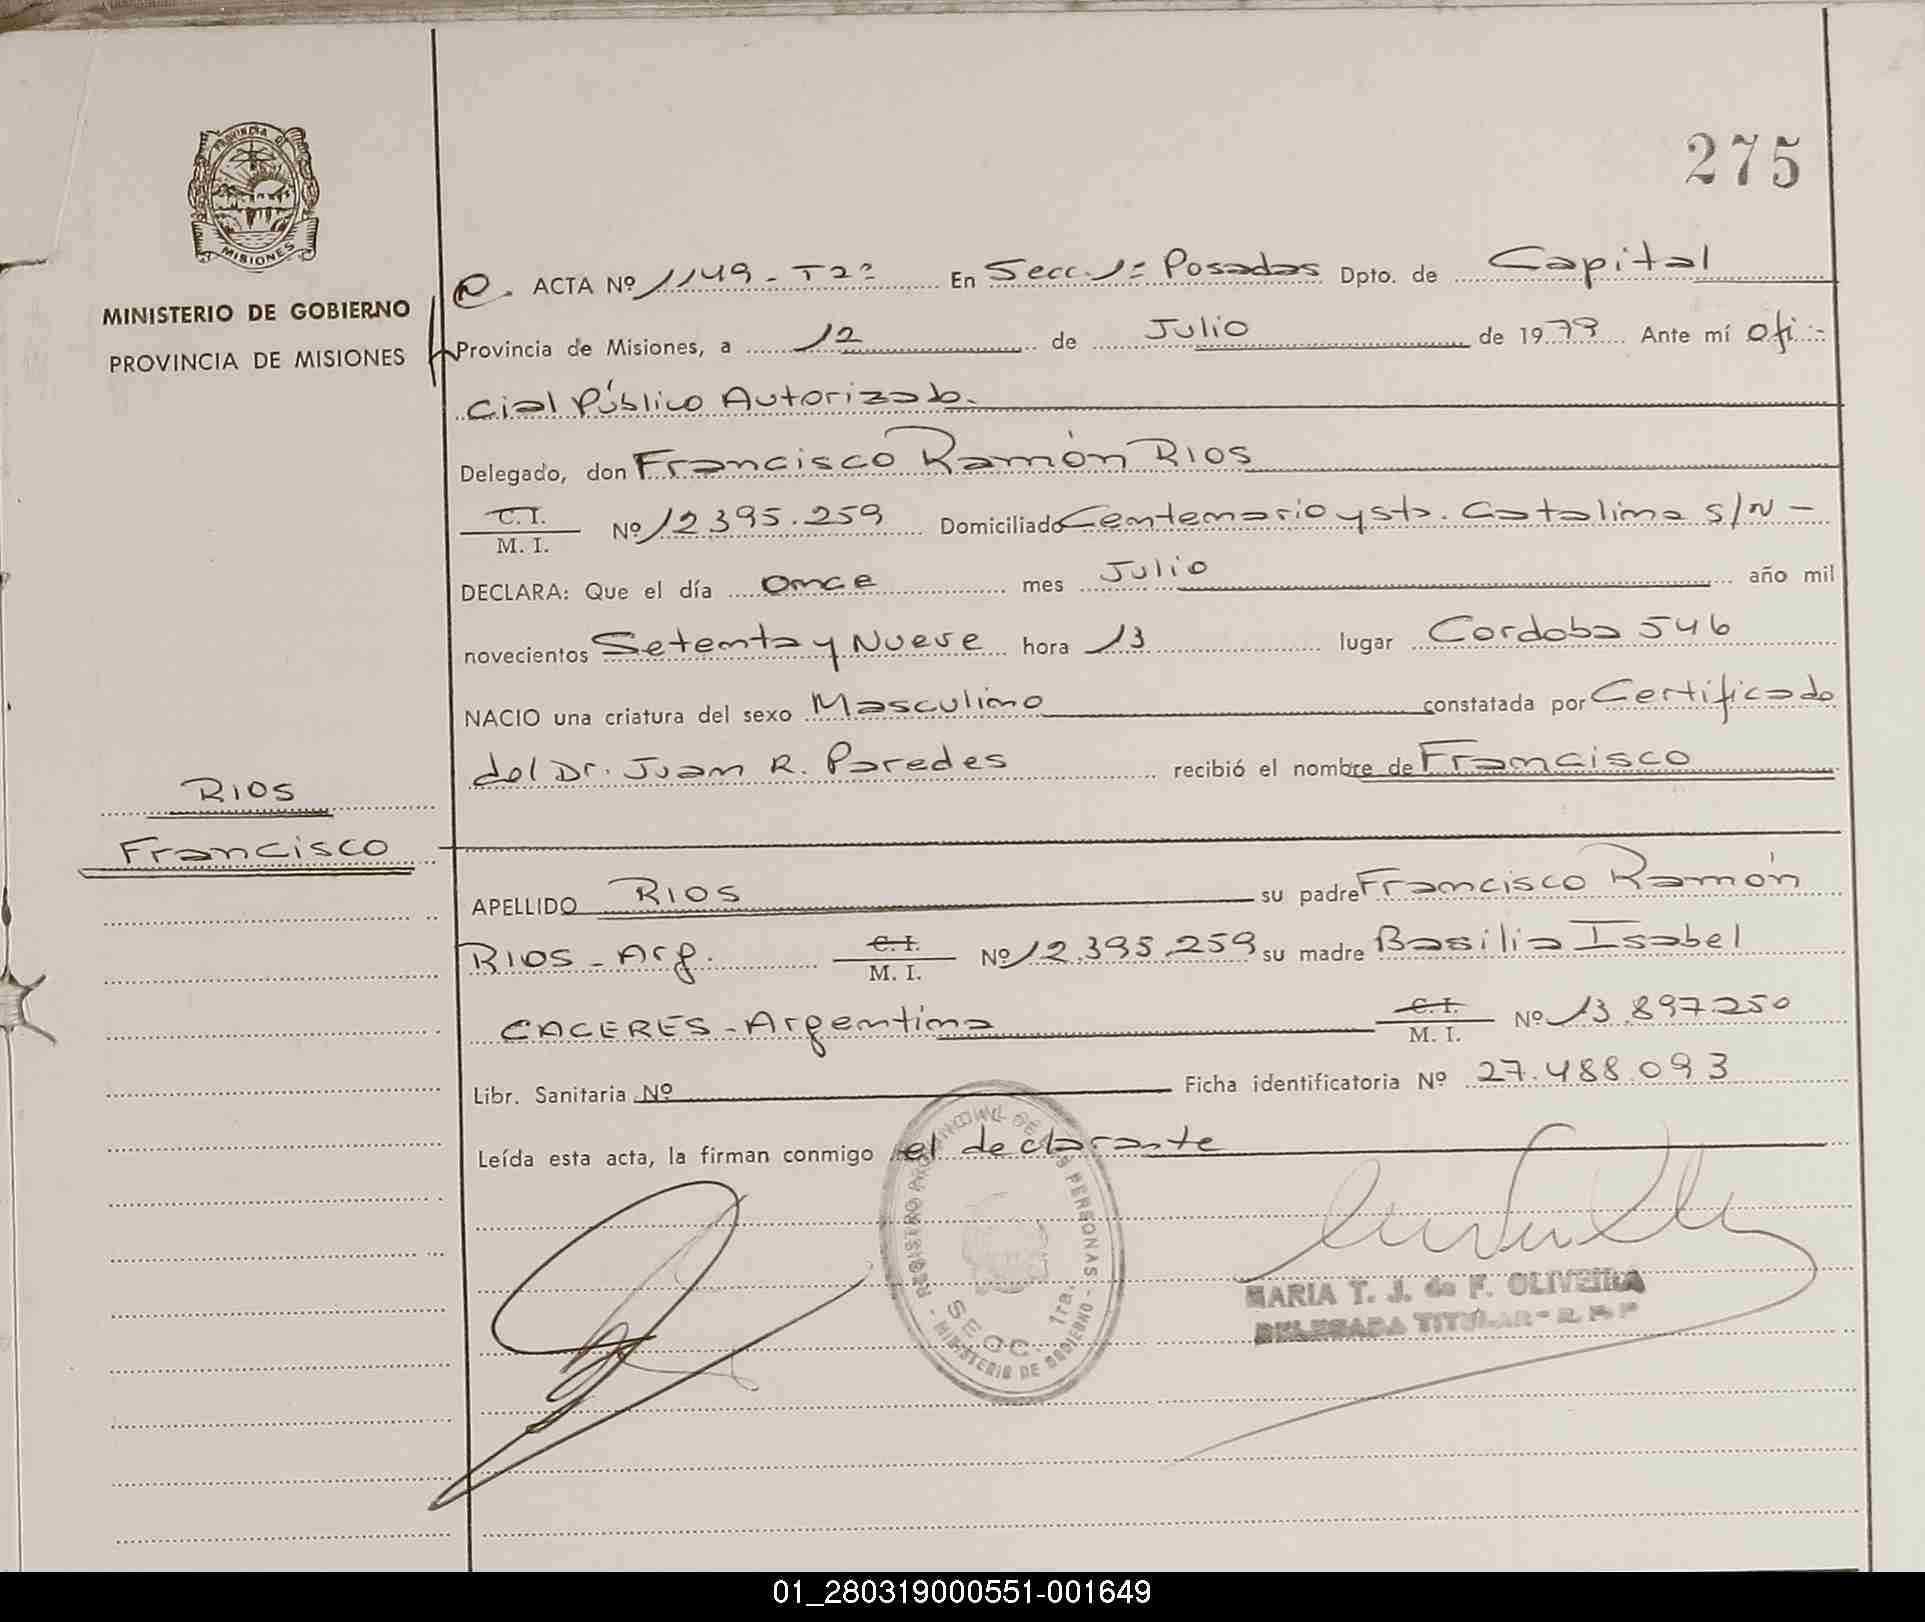 275
PROVINCIA DE
MISIONES
MINISTERIO DE GOBIERNO
PROVINCIA DE MISIONES
ACTA Nº 1149 - T2º En Secc. 1ª Posadas Dpto. de Capital
Provincia de Misiones, a 12 de Julio de 1979 Ante mí Ofi-
cial Público Autorizado.
Delegado, don Francisco Ramón Rios
C.I.
M. I. Nº 12.395.259 Domiciliado Centenario y sta. Catalina s/n -
DECLARA: Que el día once mes Julio año mil
novecientos Setenta y Nueve hora 13 lugar Cordoba 546
NACIO una criatura del sexo Masculino constatada por Certificado
del Dr. Juan R. Paredes recibió el nombre de Francisco
RIOS
Francisco
APELLIDO RIOS su padre Francisco Ramón
RIOS - Arg. C.I.
M. I. Nº 12.395.259 su madre Basilia Isabel
CACERES - Argentina C.I.
M. I. Nº 13.897.250
Libr. Sanitaria Nº Ficha identificatoria Nº 27.488.093
Leída esta acta, la firman conmigo el declarante
REGISTRO PROVINCIAL DE LAS PERSONAS
SECC. 1ra.
MINISTERIO DE GOBIERNO
MARIA T. J. de F. OLIVEIRA
DELEGADA TITULAR - R. P. P
01_280319000551-001649